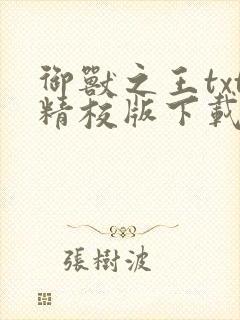 御獸之王txt
精校版下載
張樹波